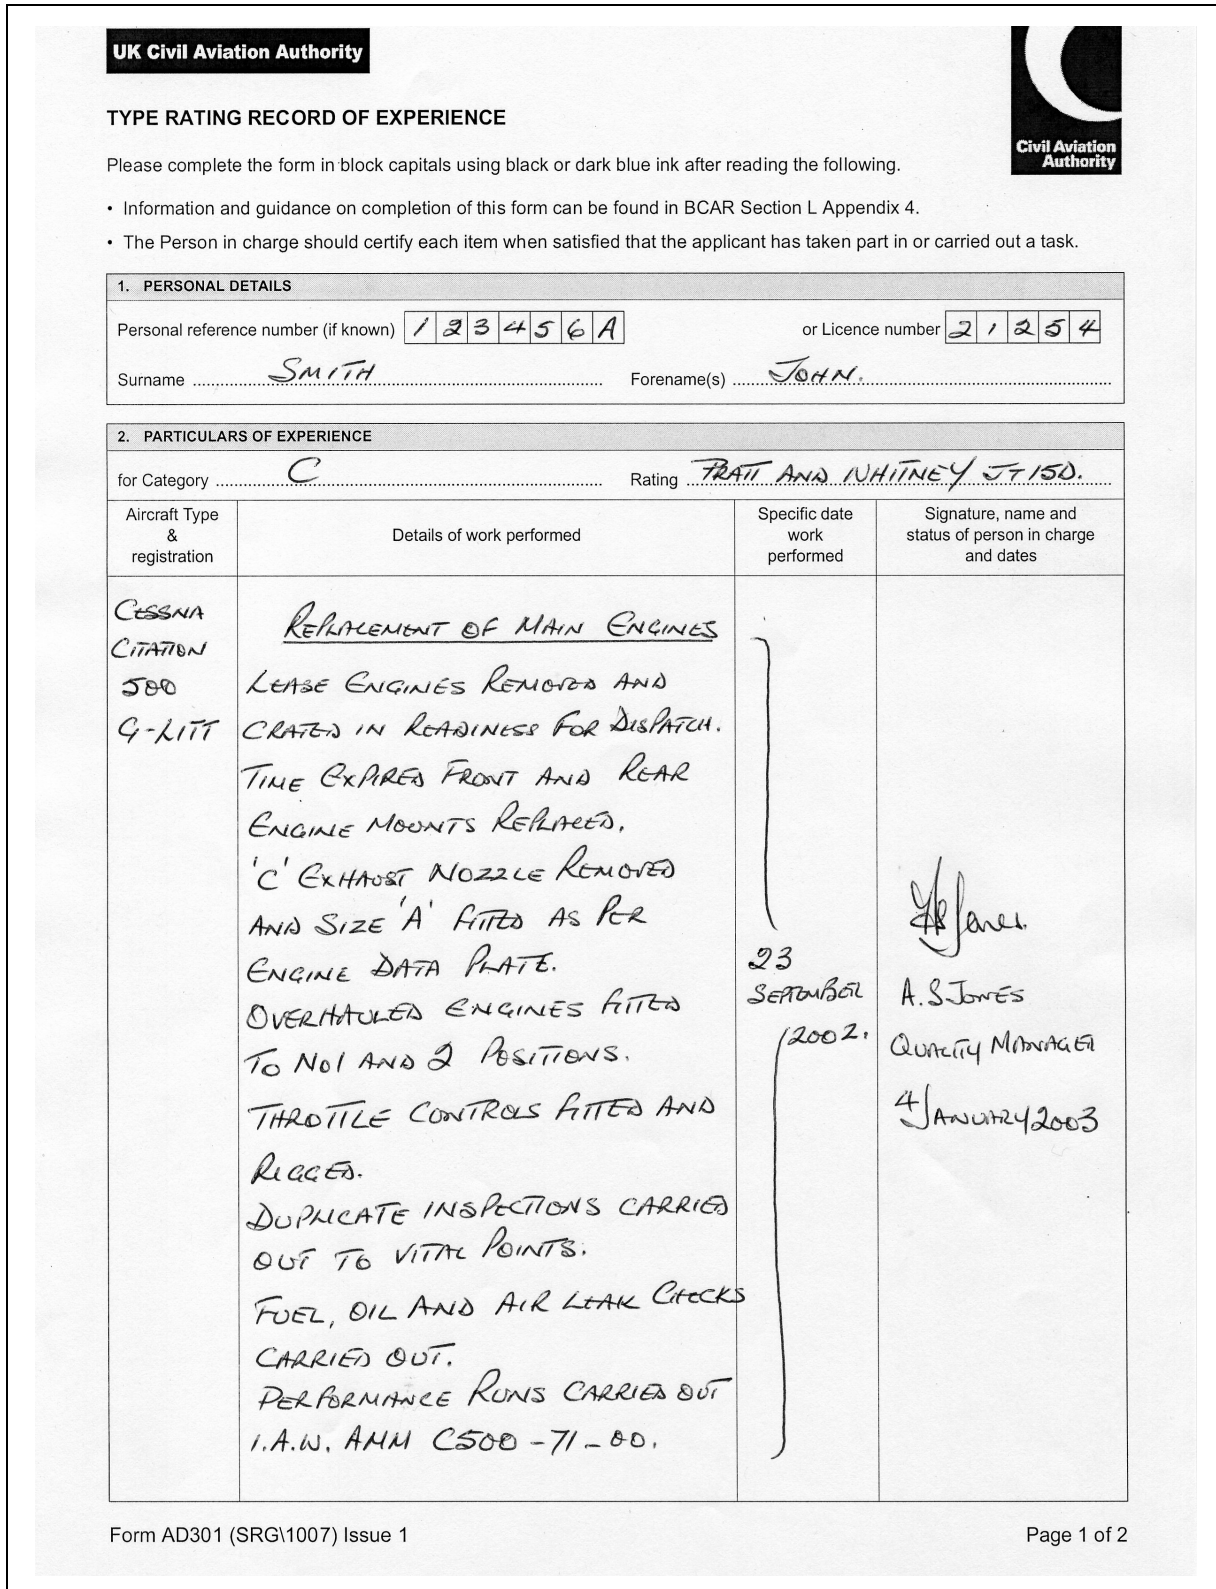 UK Civil Aviation Authority
Civil Aviation
Authority
TYPE RATING RECORD OF EXPERIENCE
Please complete the form in block capitals using black or dark blue ink after reading the following.
• Information and guidance on completion of this form can be found in BCAR Section L Appendix 4.
• The Person in charge should certify each item when satisfied that the applicant has taken part in or carried out a task.
1. PERSONAL DETAILS
Personal reference number (if known) 1 2 3 4 5 6 A or Licence number 2 1 2 5 4
Surname SMITH Forename(s) JOHN.
2. PARTICULARS OF EXPERIENCE
for Category C Rating PRATT AND WHITNEY JT15D.
Aircraft Type
&
registration
Details of work performed
Specific date
work
performed
Signature, name and
status of person in charge
and dates
CESSNA
CITATION
500
G-LITT
REPLACEMENT OF MAIN ENGINES
LEASE ENGINES REMOVED AND
CRATED IN READINESS FOR DISPATCH.
TIME EXPIRED FRONT AND REAR
ENGINE MOUNTS REPLACED.
'C' EXHAUST NOZZLE REMOVED
AND SIZE 'A' FITTED AS PER
ENGINE DATA PLATE.
OVERHAULED ENGINES FITTED
TO NO1 AND 2 POSITIONS.
THROTTLE CONTROLS FITTED AND
RIGGED.
DUPLICATE INSPECTIONS CARRIED
OUT TO VITAL POINTS.
FUEL, OIL AND AIR LEAK CHECKS
CARRIED OUT.
PERFORMANCE RUNS CARRIED OUT
I.A.W. AMM C500-71-00.
23
SEPTEMBER
2002.
AS Jones.
A.S JONES
QUALITY MANAGER
4 JANUARY 2003
Form AD301 (SRG\1007) Issue 1 Page 1 of 2